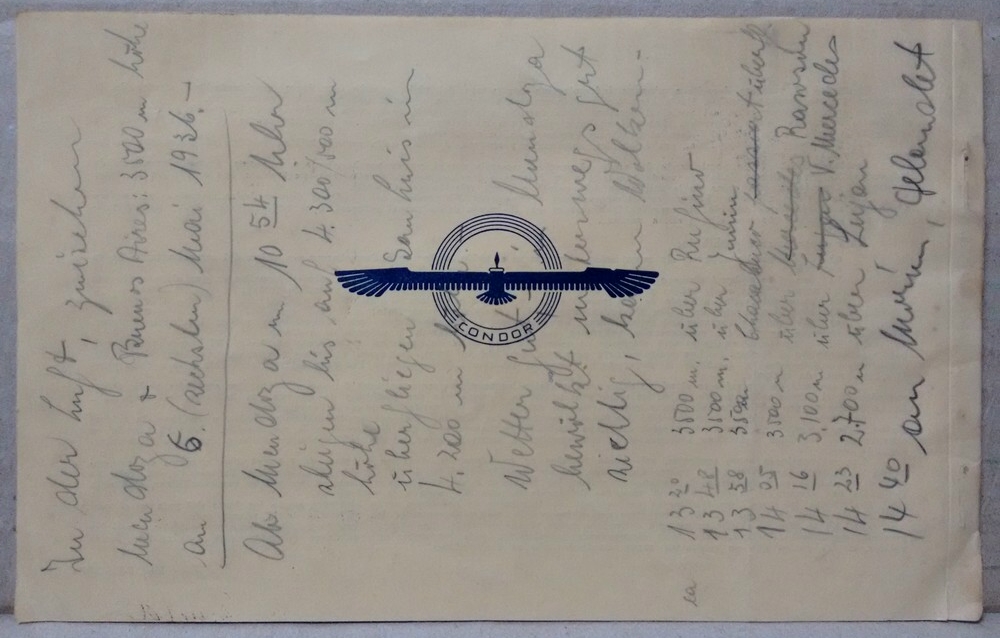 In der Luft, zwischen
Mendoza + Buenos Aires: 3500 m höhe
am 6. (sechsten) Mai 1936.—
Ab Mendoza um 10 54 Uhr
stiegen bis auf 4.300/500 m
höhe
überfliegen San Luis in
4.200 m
Wetter gut, Mendoza
bewölkt unterwegs
Wolken.-
CONDOR
ca 13 20 3500 m. über Rufino
13 48 3500 m. über Junin
13 58 3500 Chacabuco
14 05 3500 m über Rawson
14 16 3.100 m über V. Mercedes
14 23 2.700 m über Lujan
14 40 in Morón, gelandet